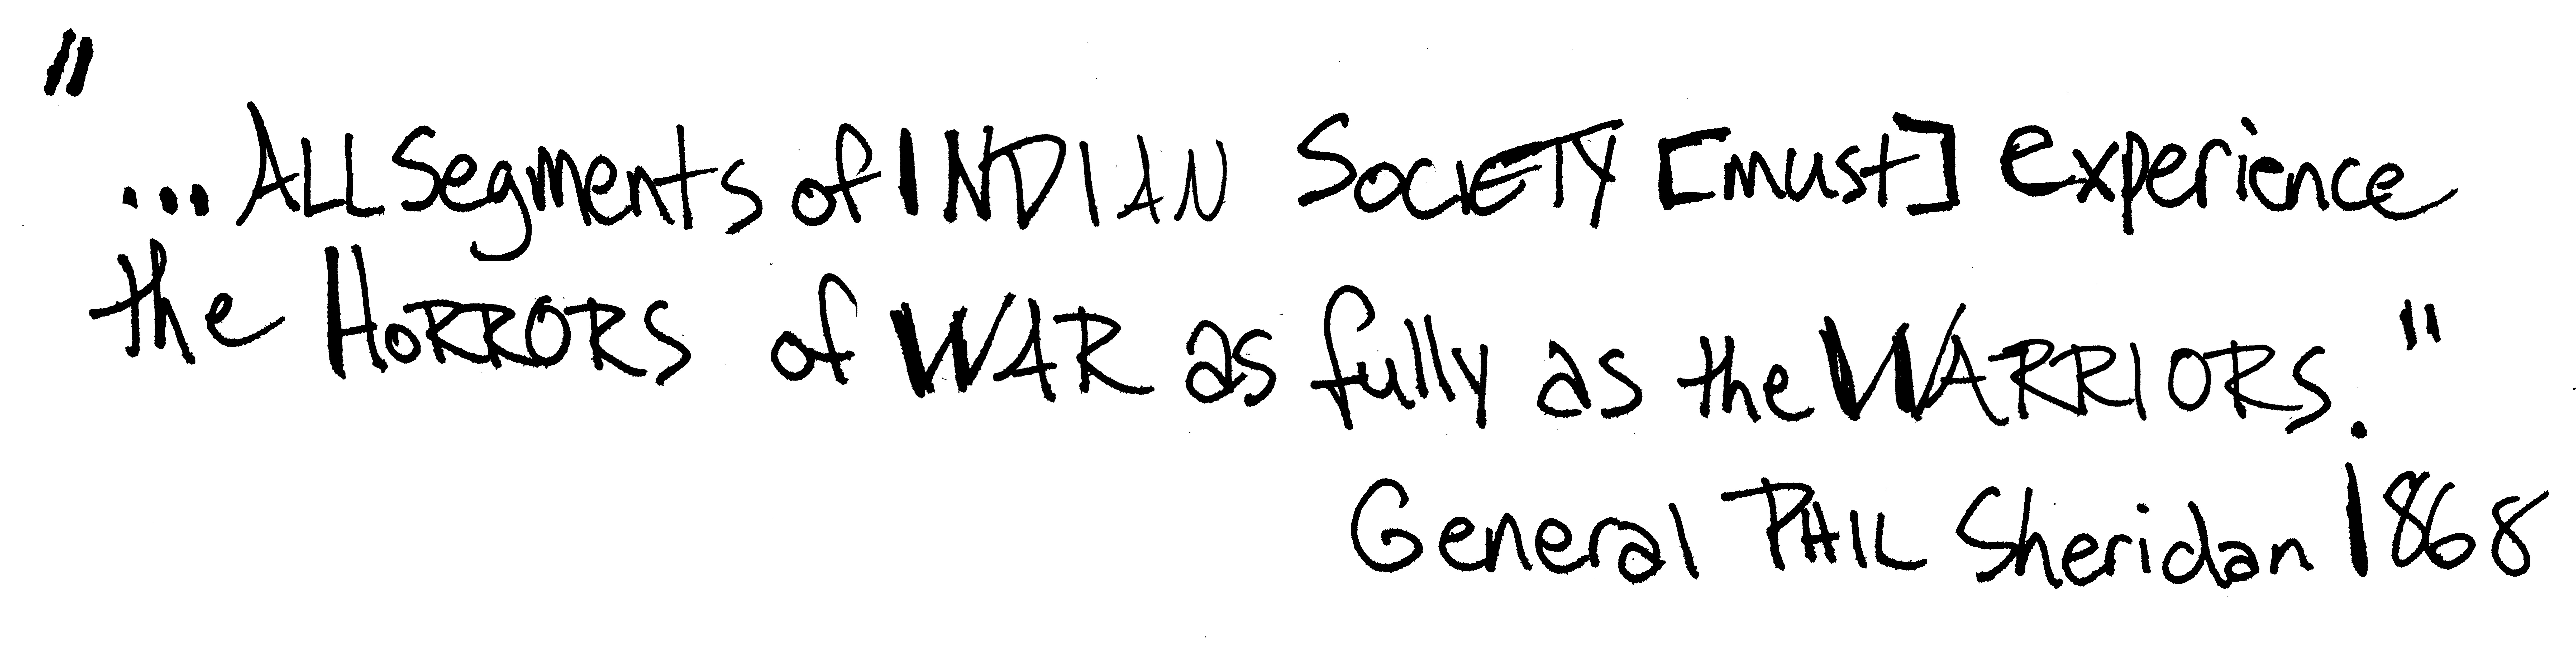 "
...ALL Segments of INDIAN SOCIETY [must] experience
the HORRORS of WAR as fully as the WARRIORS."
General PHIL Sheridan 1868